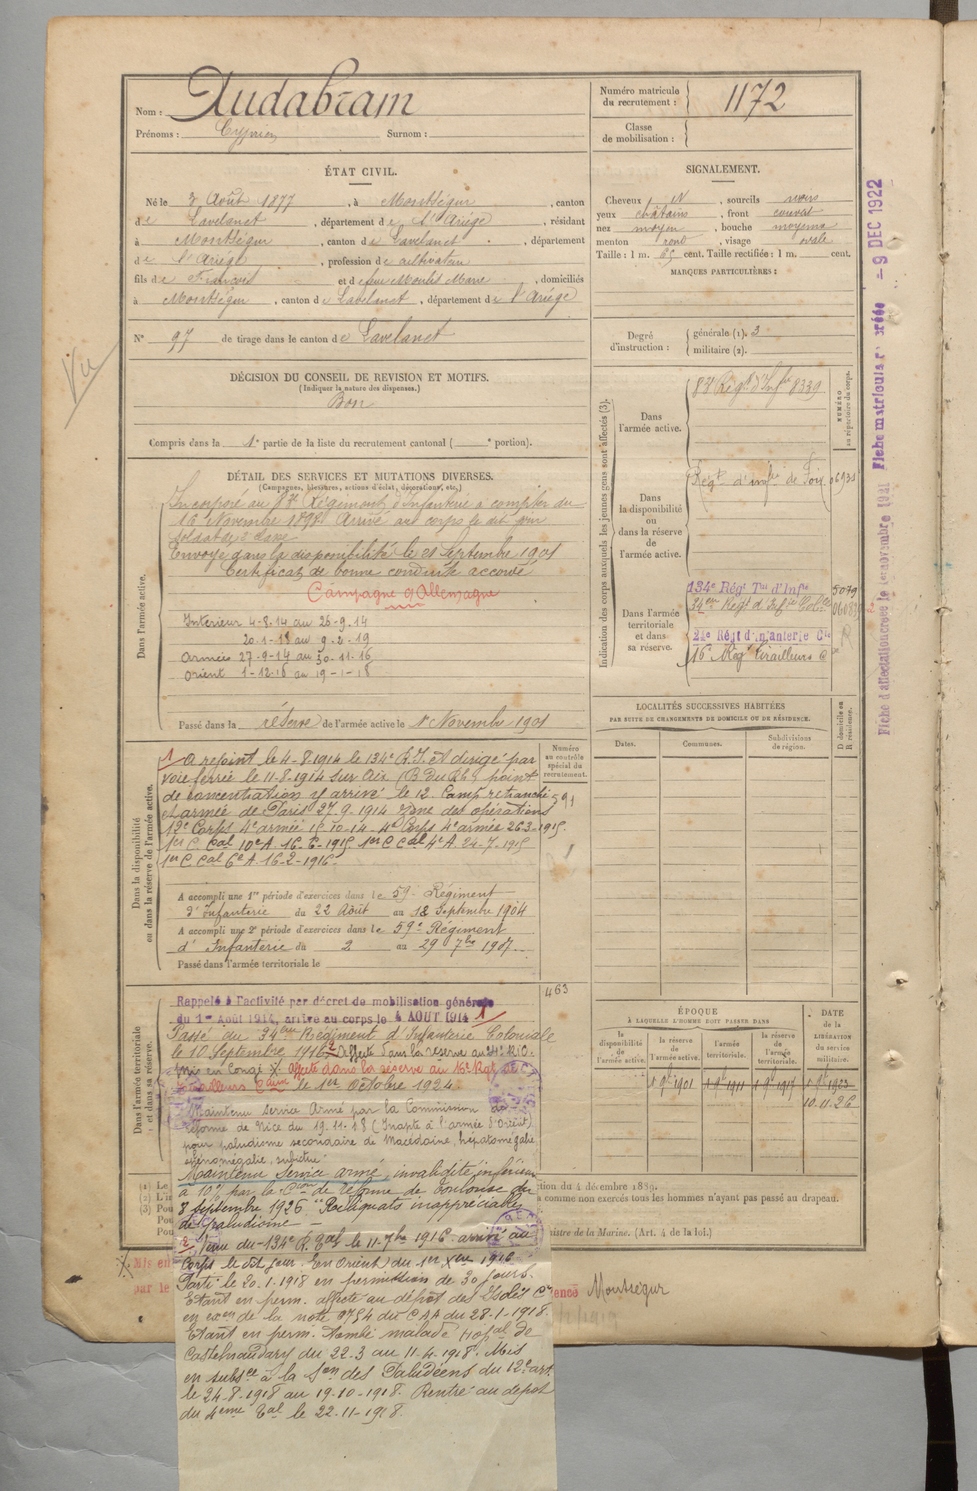 Nom : Audabram
Prénoms : Cyprien Surnom :
Numéro matricule du recrutement : 1172
Classe de mobilisation :
ÉTAT CIVIL.
Né le 3 Août 1877, à Montségur, canton
de Lavelanet, département de l'Ariège, résidant
à Montségur, canton de Lavelanet, département
de l'Ariège, profession de cultivateur
fils de François et de feue Moulis Marie, domiciliés
à Montségur, canton de Lavelanet, département de l'Ariège
N° 97 de tirage dans le canton de Lavelanet
SIGNALEMENT.
Cheveux N, sourcils noirs
yeux châtains, front couvert
nez moyen, bouche moyenne
menton rond, visage ovale
Taille : 1 m. 65 cent. Taille rectifiée : 1 m. cent.
MARQUES PARTICULIÈRES :
Degré d'instruction : générale (1). 3
militaire (2).
Vu
DÉCISION DU CONSEIL DE REVISION ET MOTIFS.
(Indiquer la nature des dispenses.)
Bon
Compris dans la 1e partie de la liste du recrutement cantonal ( e portion).
DÉTAIL DES SERVICES ET MUTATIONS DIVERSES.
(Campagnes, blessures, actions d'éclat, décorations, etc.)
Dans l'armée active.
Incorporé au 83e Régiment d'Infanterie à compter du
16 Novembre 1898. Arrivé au corps le dit jour
soldat de 2e classe
Envoyé dans la disponibilité le 21 Septembre 1901
Certificat de bonne conduite accordé
Campagne c/ Allemagne
Intérieur 4-8-14 au 26-9-14
20-1-18 au 9-2-19
Armées 27-9-14 au 30-11-16
Orient 1-12-16 au 19-1-18
Passé dans la réserve de l'armée active le 1er Novembre 1901
Indication des corps auxquels les jeunes gens sont affectés (3).
NUMÉRO au répertoire du corps.
Dans l'armée active.
83e Régt d'Infie 8339
Dans la disponibilité ou dans la réserve de l'armée active.
Régt d'infie de Foix 06931
Dans l'armée territoriale et dans sa réserve.
134e Régt Tal d'Infie 5079
34eme Régt d'Infie Colle
24e Régt d'Infanterie Cle
16e Régt Tirailleurs C
R
Fiche d'affectation créée le 1er novembre 1921 Fiche matricule r créée - 9 DEC 1922
Dans la disponibilité ou dans la réserve de l'armée active.
Numéro au contrôle spécial du recrutement.
591
1 A rejoint le 4-8-1914 le 134e R.I. Et dirigé par
voie ferrée le 11-8-1914 sur Aix (B du R) point
de concentration y arrivé le 12. Camp retranché
et armée de Paris 27.9.1914 Zone des opérations
12e Corps 4e armée 15-10-14 - 4e Corps 4e armée 26.3-1915
1er C. Cal 10e A. 16-6-1915 1er C Cal 4e A. 24-7-1915
1er C. Cal 6e A. 16-2-1916-
A accompli une 1re période d'exercices dans le 59e Régiment
d'Infanterie du 22 Août au 18 Septembre 1904
A accompli une 2e période d'exercices dans le 59e Régiment
d'Infanterie du 2 au 29 7bre 1907
Passé dans l'armée territoriale le
LOCALITÉS SUCCESSIVES HABITÉES
PAR SUITE DE CHANGEMENTS DE DOMICILE OU DE RÉSIDENCE.
Dates. Communes. Subdivisions de région. D domicile ou R résidence.
Dans l'armée territoriale et dans sa réserve.
463
Rappelé à l'activité par décret de mobilisation générale
du 1er Août 1914, arrivé au corps le 4 AOUT 1914 1
Passé du 34eme Régiment d'Infanterie Coloniale
le 10 Septembre 1916 2 Affecté dans la réserve au 24e R.I.C.
Mis en Congé X affecté dans la réserve au 16e Rgt de
Tirailleurs Caux le 1er Octobre 1924
Maintenu service Armé par la Commission de
réforme de Nice du 19-11-18 (Inapte à l'armée d'Orient)
pour paludisme secondaire de Macédoine, hépatomégalie
splénomégalie,
Maintenu Service armé, invalidité inférieure
à 10% par la Cion de réforme de Toulouse du
8 septembre 1926 "Reliquats inappréciables
de paludisme -
2 Venu du 134e R. Tal le 11-7bre 1916. arrivé au
Corps le dit jour. En Orient du 1er Xbre 1916
Parti le 20-1-1918 en permission de 30 jours.
Etant en perm. affecté au dépôt des Isolés Cx
en exon de la note 9754 du CAA du 28-1-1918.
Etant en perm. tombé malade Hopal de
Castelnaudary du 22-3 au 11-4-1918. Mis
en subsce à la Son des Paludéens du 12e art.
le 24-8-1918 au 19-10-1918. Rentré au dépôt
du 4eme Cal le 22-11-1918.
ÉPOQUE
À LAQUELLE L'HOMME DOIT PASSER DANS
la disponibilité de l'armée active. la réserve de l'armée active. l'armée territoriale. la réserve de l'armée territoriale.
DATE de la LIBÉRATION du service militaire.
1 9bre 1901 1 9bre 1911 1 9bre 1917 1 9bre 1923
10.11.26
(1) Le
(2) L'in
(3) Pou
Pou
Pou
tion du 4 décembre 1889.
comme non exercés tous les hommes n'ayant pas passé au drapeau.
nistre de la Marine. (Art. 4 de la loi.)
X Mis en
par le
ence Montségur